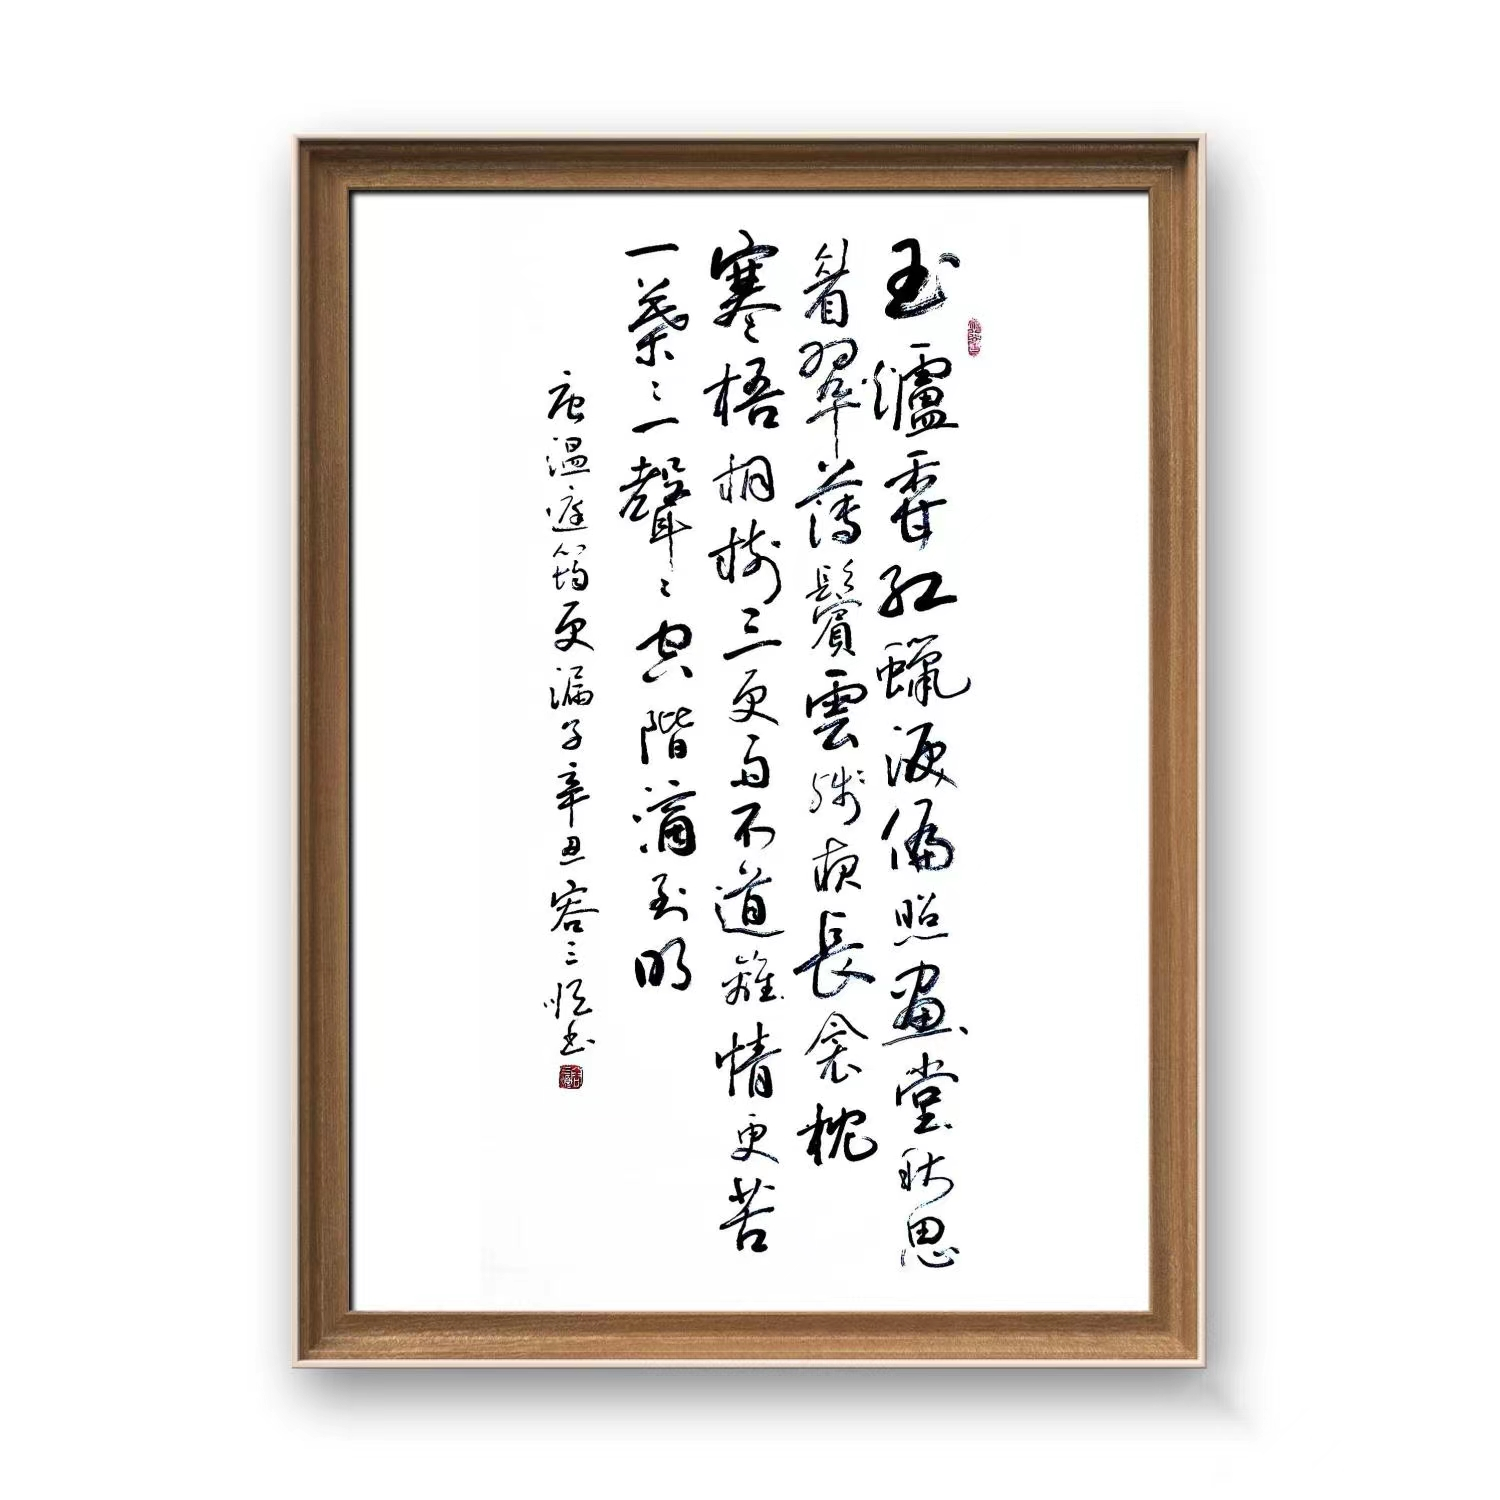 玉爐香红蠟淚偏照畫堂秋思
眉翠薄鬢雲殘夜長衾枕
寒梧桐樹三更雨不道離情更苦
一葉〻一聲〻空階滴到明
唐温庭筠更漏子辛丑容三恒书